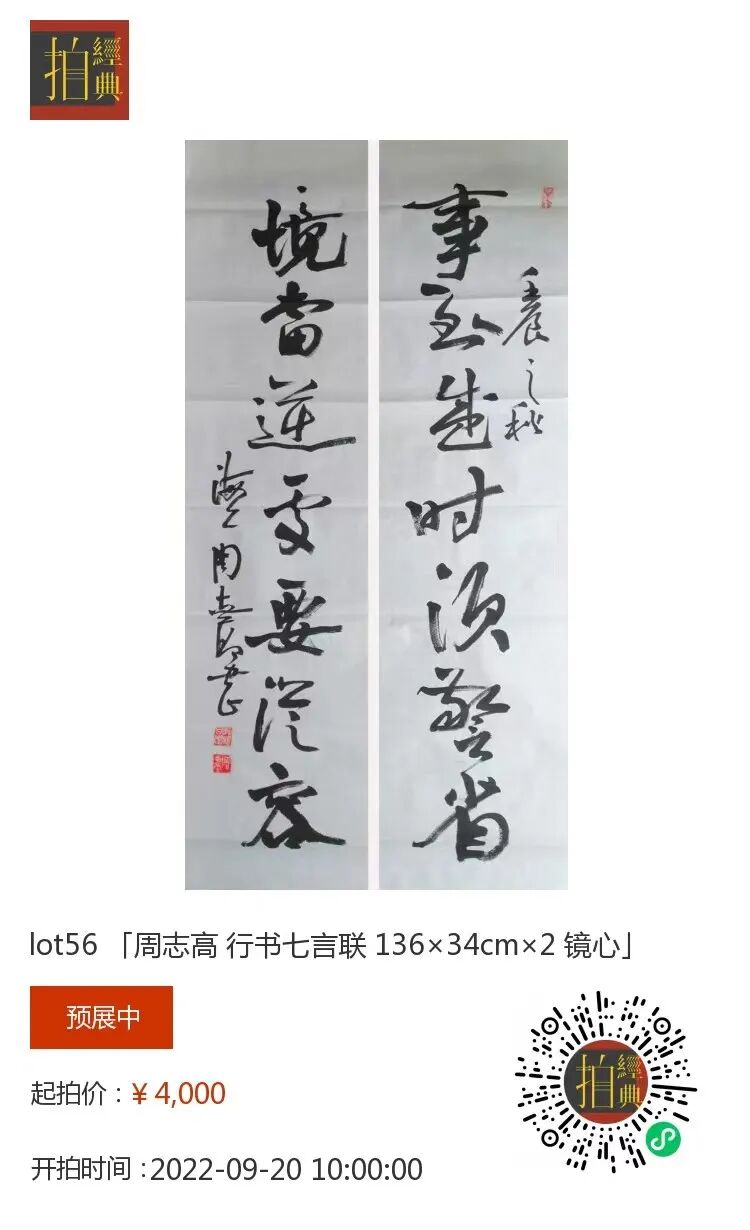 拍
經
典
事至盛时须警省
壬辰之秋
境當逆處要從容
海上周志高書
lot56 「周志高 行书七言联 136×34cm×2 镜心」
预展中
起拍价 : ¥ 4,000
开拍时间 : 2022-09-20 10:00:00
拍
經
典